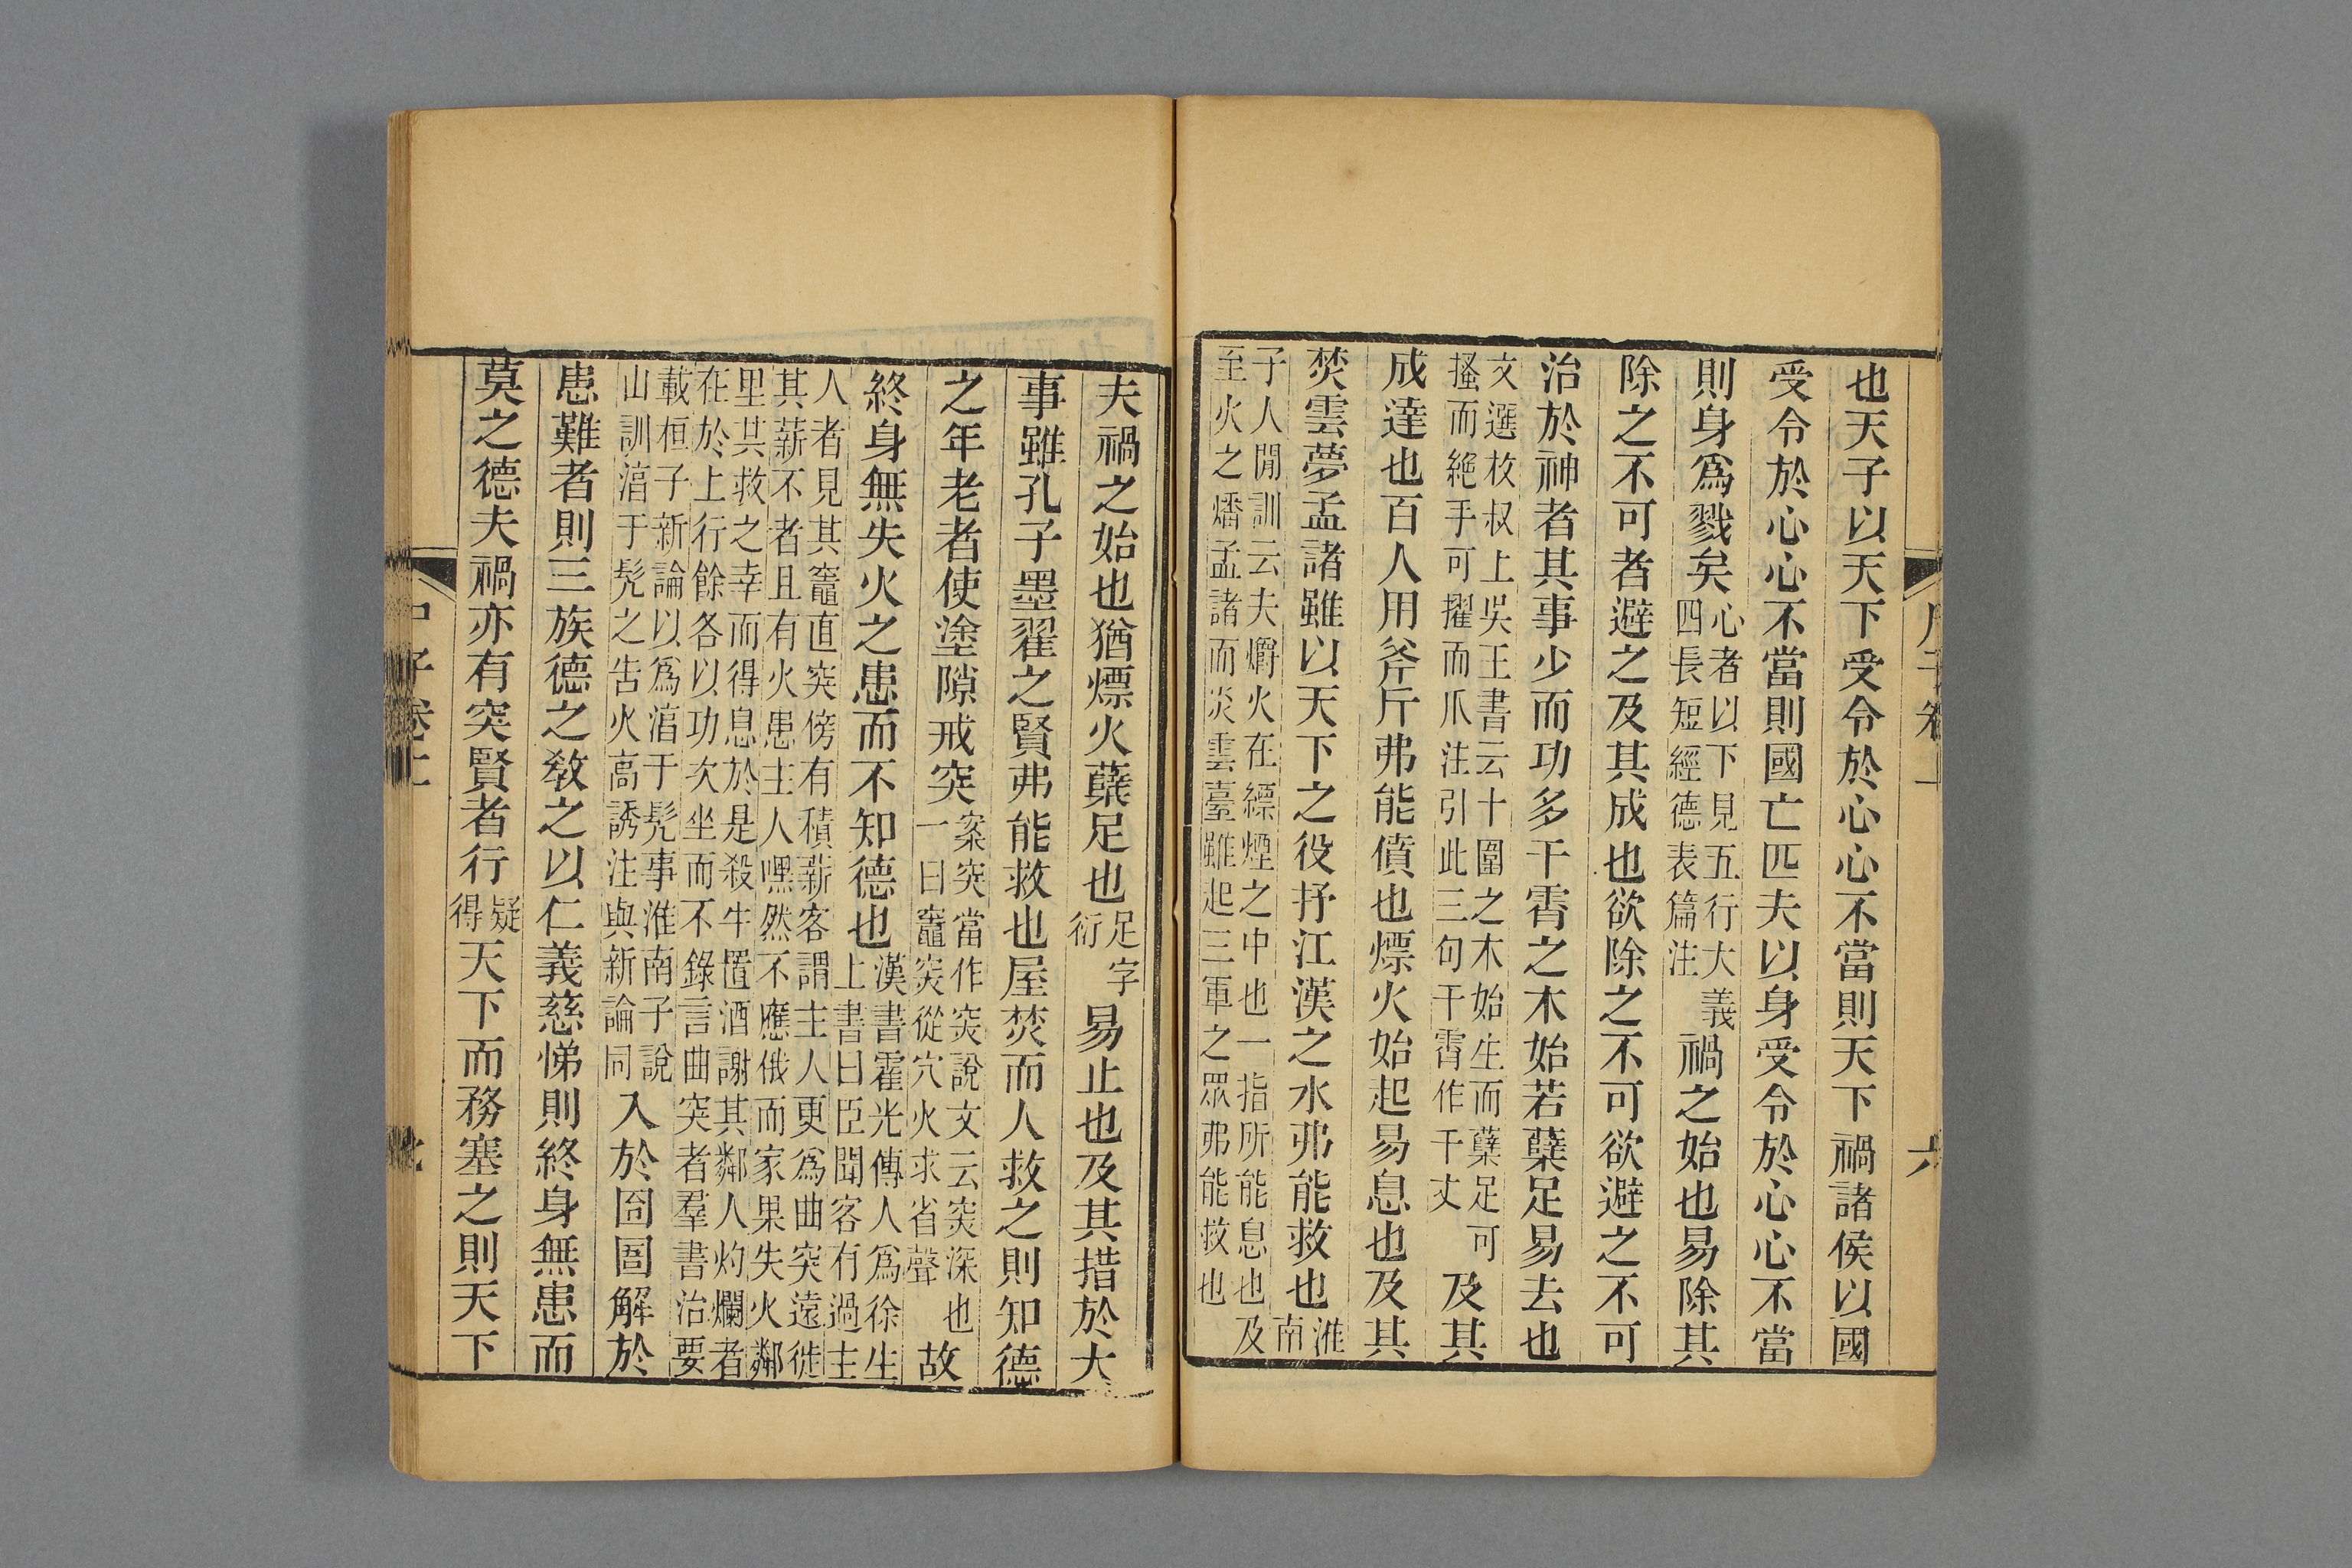 也天子以天下受令於心心不當則天下禍諸侯以國
受令於心心不當則國亡匹夫以身受令於心心不當
則身爲戮矣心者以下見五行大義四長短經德表篇注禍之始也易除其
除之不可者避之及其成也欲除之不可欲避之不可
治於神者其事少而功多干霄之木始若蘖足易去也
文選枚叔上吳王書云十圍之木始生而蘖足可搔而絶手可擢而爪注引此三句干霄作干丈及其
成達也百人用斧斤弗能僨也熛火始起易息也及其
焚雲夢孟諸雖以天下之役抒江漢之水弗能救也淮南
子人閒訓云夫爝火在縹煙之中也一指所能息也及
至火之燔孟諸而炎雲臺雖起三軍之眾弗能救也
夫禍之始也猶熛火蘖足也足字衍易止也及其措於大
事雖孔子墨翟之賢弗能救也屋焚而人救之則知德
之年老者使塗隙戒突案突當作㚜說文云㚜深也一曰竈㚜從穴火求省聲故
終身無失火之患而不知德也漢書霍光傳人爲徐生上書曰臣聞客有過主
人者見其竈直突傍有積薪客謂主人更爲曲突遠徙
其薪不者且有火患主人嘿然不應俄而家果失火鄰
里共救之幸而得息於是殺牛置酒謝其鄰人灼爛者
在於上行餘各以功次坐而不錄言曲突者羣書治要
載桓子新論以爲湻于髡事淮南子說
山訓湻于髡之告火高誘注與新論同入於囹圄解於
患難者則三族德之敎之以仁義慈悌則終身無患而
莫之德夫禍亦有突賢者行疑得天下而務塞之則天下